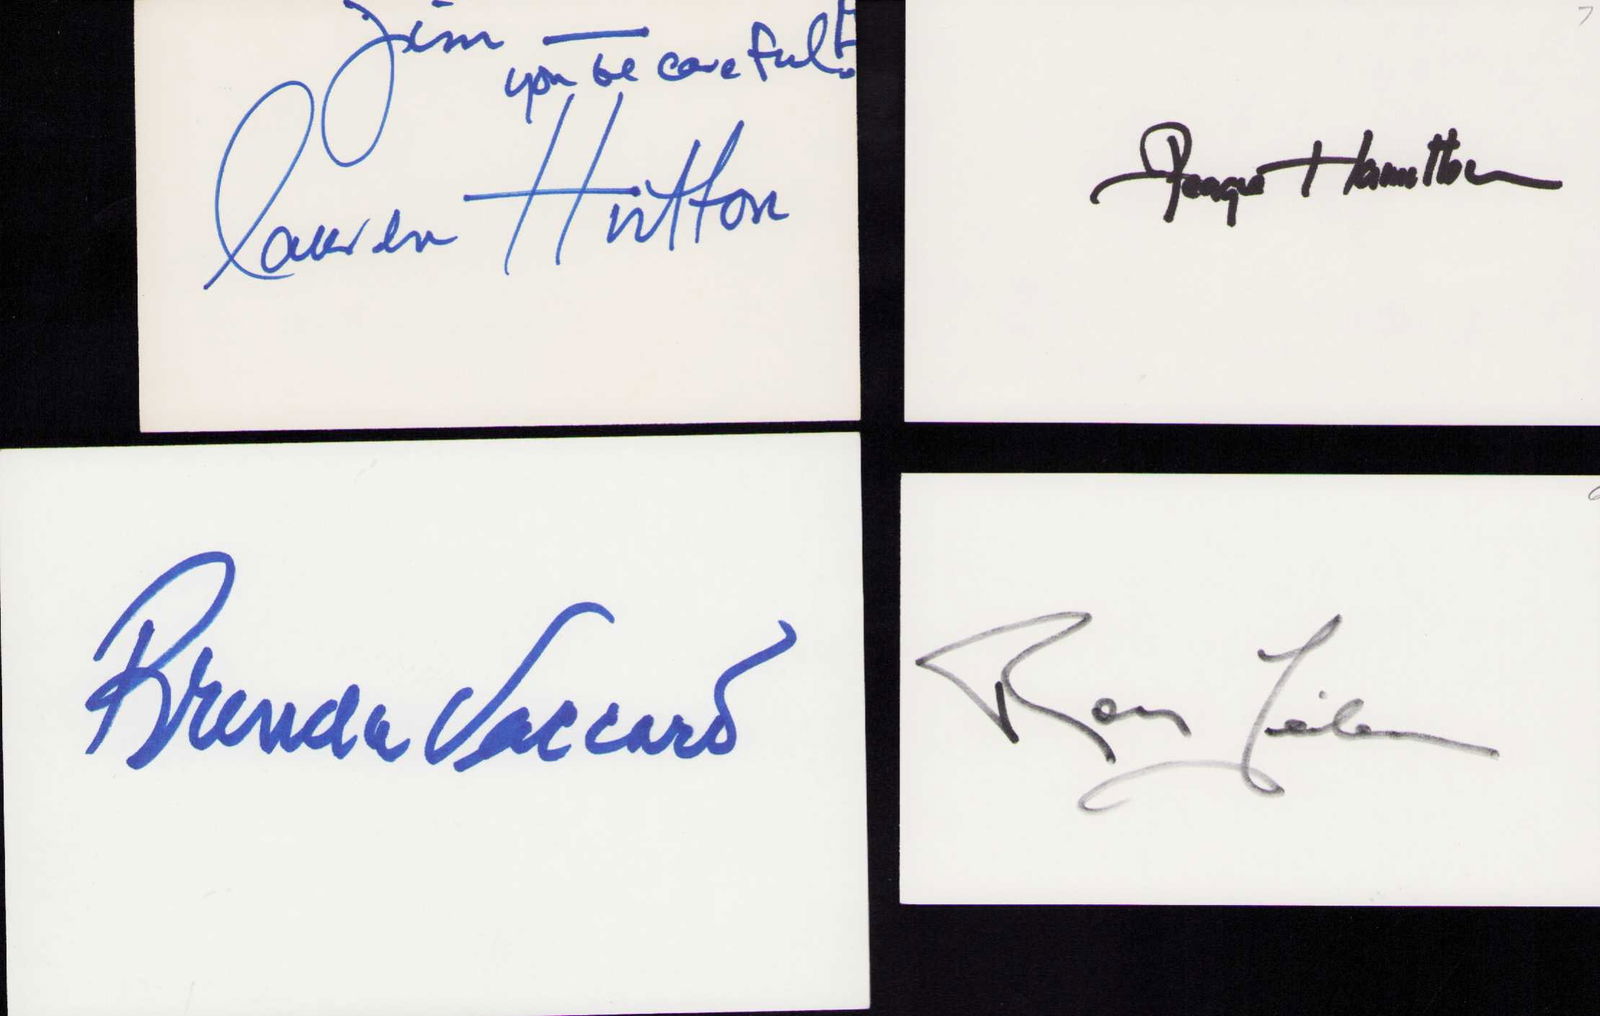 Jim —
you be careful!
Lauren Hutton
George Hamilton
Brenda Vaccaro
Ron